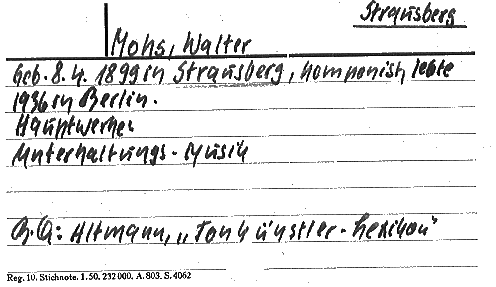 Strausberg
Mohs, Walter
Geb. 8.4. 1899 in Strausberg, Komponist, lebte
1936 in Berlin.
Hauptwerke:
Unterhaltungs-Musik
Altmann, „Tonkünstler-Lexikon"
Reg. 10. Stichnote. 1.50. 232000. A. 803. S. 4062